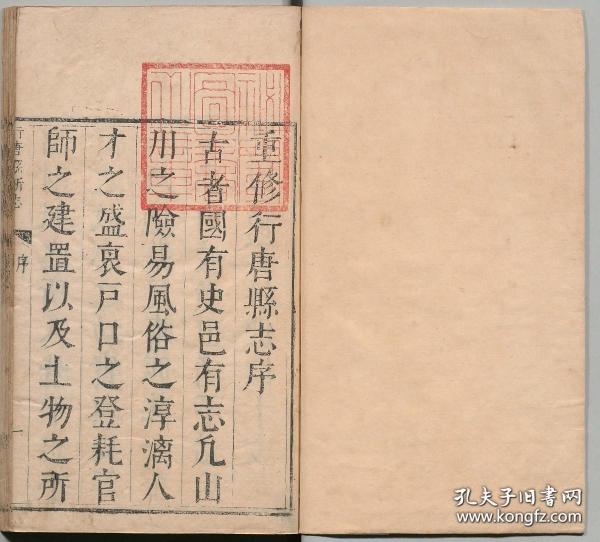 重修行唐縣志序
古者國有史邑有志凡山
川之險易風俗之淳漓人
才之盛衰戸口之登耗官
師之建置以及土物之所
行唐縣新志
序
一
孔夫子旧书网
www.kongfz.com